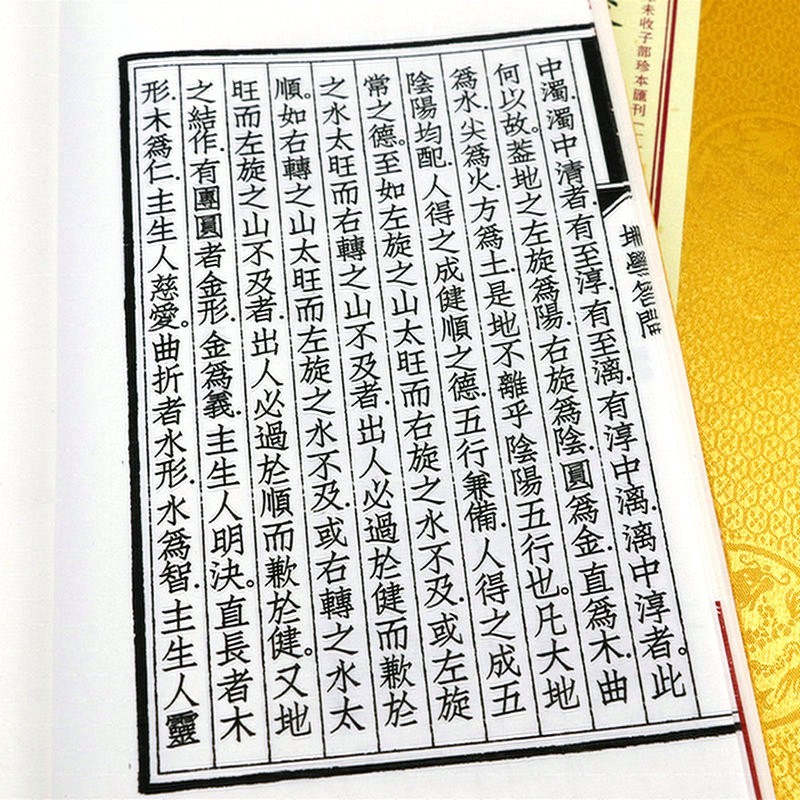 未收子部珍本匯刊
中濁.濁中清者.有至淳.有至漓.有淳中漓.漓中淳者。此
何以故。葢地之左旋爲陽.右旋爲陰.圓爲金.直爲木.曲
爲水.尖爲火.方爲土.是地不離乎陰陽五行也。凡大地
陰陽均配.人得之成健順之德.五行兼備.人得之成五
常之德。至如左旋之山太旺而右旋之水不及.或左旋
之水太旺而右轉之山不及者.出人必過於健而歉於
順。如右轉之山太旺而左旋之水不及.或右轉之水太
旺而左旋之山不及者.出人必過於順而歉於健。又地
之結作.有團圓者金形.金爲義.主生人明決。直長者木
形.木爲仁.主生人慈愛。曲折者水形.水爲智.主生人靈